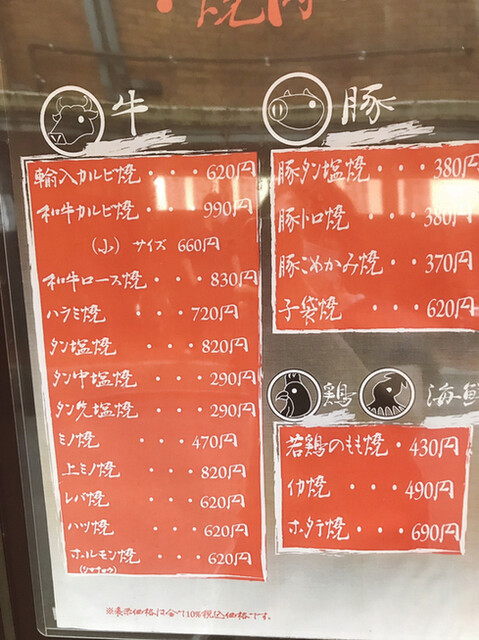 焼肉
牛
輸入カルビ焼・・・620円
和牛カルビ焼・・・990円
(小)サイズ 660円
和牛ロース焼・・・830円
ハラミ焼・・・720円
タン塩焼・・・820円
タン中塩焼・・・290円
タン先塩焼・・・290円
ミノ焼・・・470円
上ミノ焼・・・820円
レバ焼・・・620円
ハツ焼・・・620円
ホルモン焼・・・620円
(シマチョウ)
※表示価格は全て10%税込価格です。
豚
豚タン塩焼・・・380円
豚トロ焼・・・380円
豚こめかみ焼・・370円
子袋焼・・・620円
鶏
海鮮
若鶏のもも焼・430円
イカ焼・・・490円
ホタテ焼・・・690円